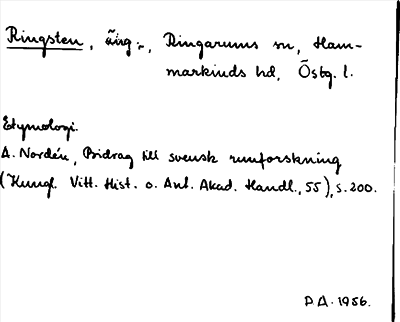 Ringsten, äng :-, Ringarums sn, Ham-
markinds hd, Östg. l.
Etymologi.
A. Nordén, Bidrag till svensk runforskning
(Kungl. Vitt. Hist. o. Ant. Akad. Handl., 55), s. 200.
P.A. 1956.